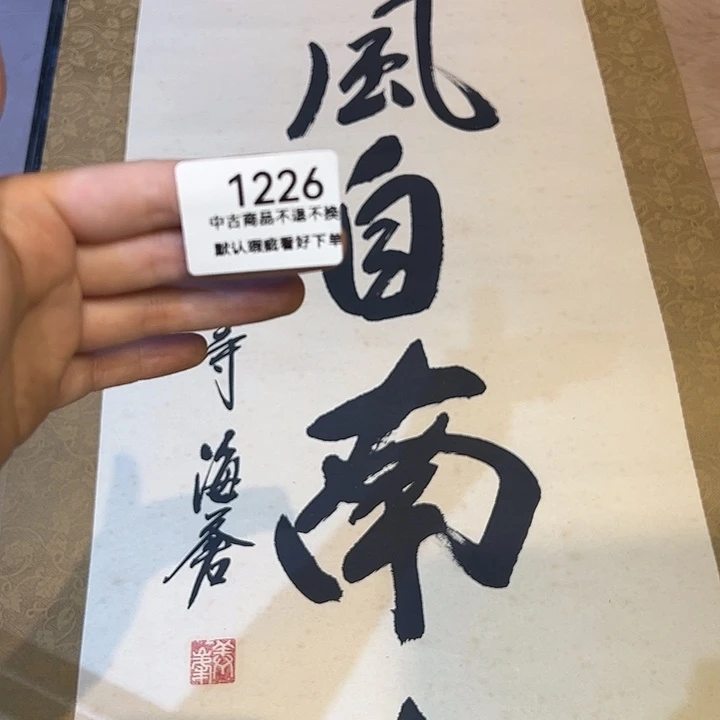 風自南
寺 海葊
1226
中古商品不退不换
默认瑕疵看好下单